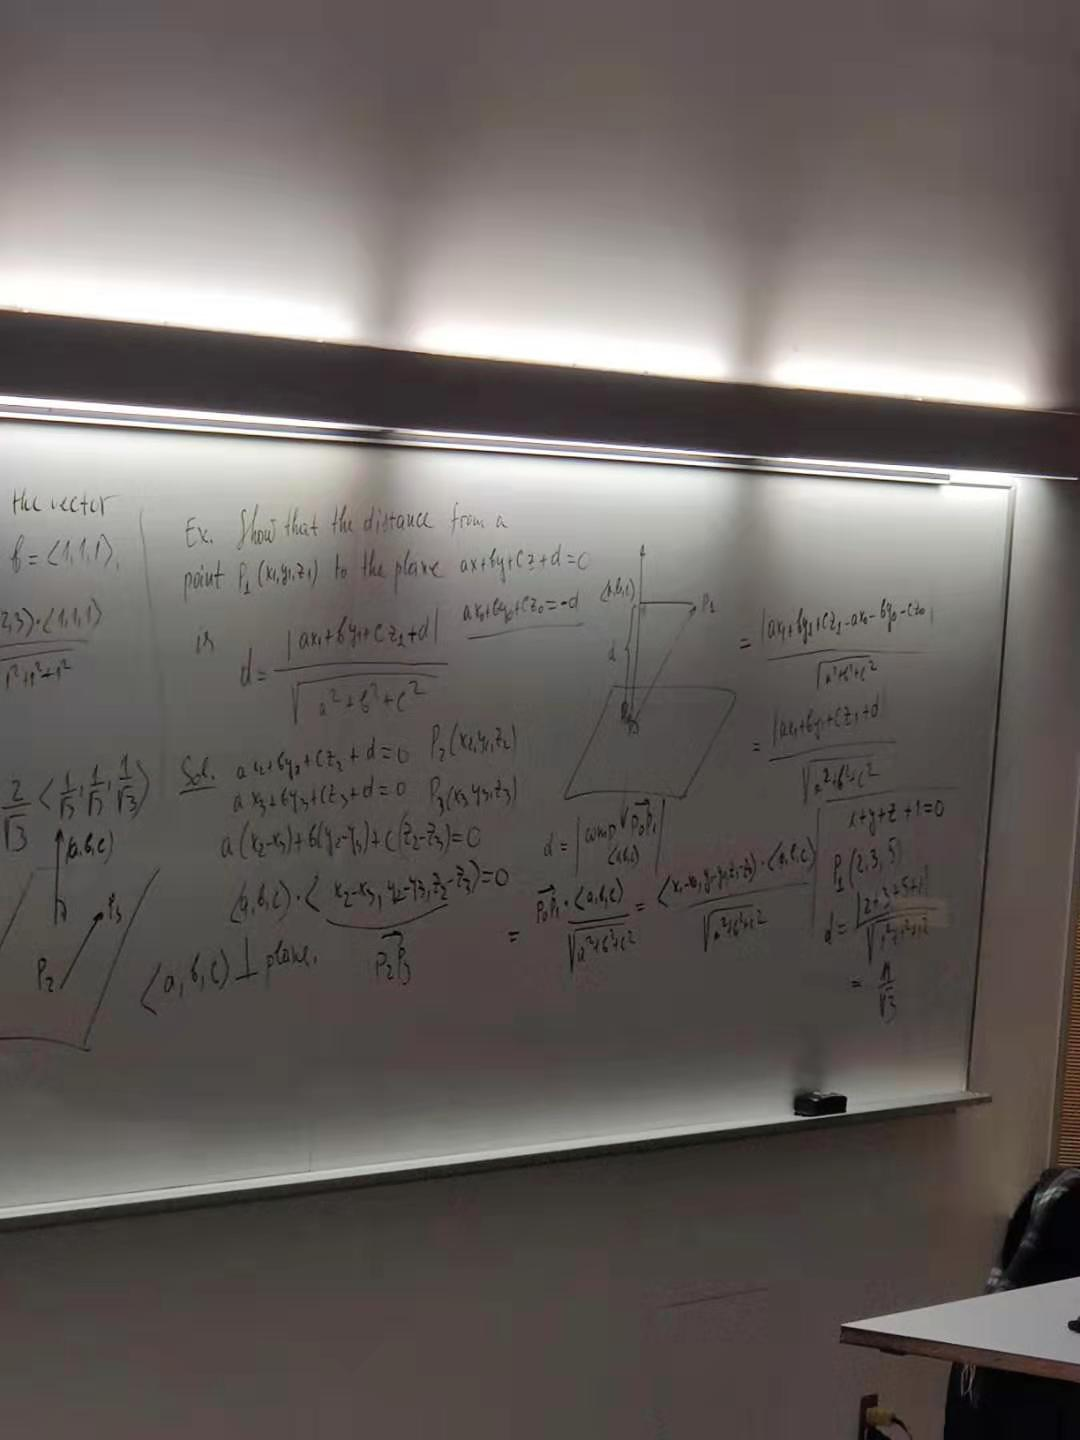 the vector
b = ⟨1,1,1⟩,
2,3⟩·⟨1,1,1⟩
1²+1²+1²
2/√3 ⟨1/√3, 1/√3, 1/√3⟩
⟨a,b,c⟩
P₃
P₂
Ex. Show that the distance from a
point P₁(x₁,y₁,z₁) to the plane ax+by+cz+d=0
is d = |ax₁+by₁+cz₁+d| / √(a²+b²+c²)
ax₀+by₀+cz₀=-d
Sol. ax₂+by₂+cz₂+d=0 P₂(x₂,y₂,z₂)
ax₃+by₃+cz₃+d=0 P₃(x₃,y₃,z₃)
a(x₂-x₃)+b(y₂-y₃)+c(z₂-z₃)=0
⟨a,b,c⟩·⟨x₂-x₃, y₂-y₃, z₂-z₃⟩=0
P₂P₃
⟨a,b,c⟩ ⊥ plane.
⟨a,b,c⟩
P₁
d
d = |comp⟨a,b,c⟩ P₀P₁|
= P₀P₁·⟨a,b,c⟩ / √(a²+b²+c²) = ·⟨a,b,c⟩ / √(a²+b²+c²)
= |ax₁+by₁+cz₁-ax₀-by₀-cz₀| / √(a²+b²+c²)
= |ax₁+by₁+cz₁+d| / √(a²+b²+c²)
x+y+z+1=0
P₁(2,3,5)
d = |2+3+5+1| / √(1²+1²+1²)
= 11/√3